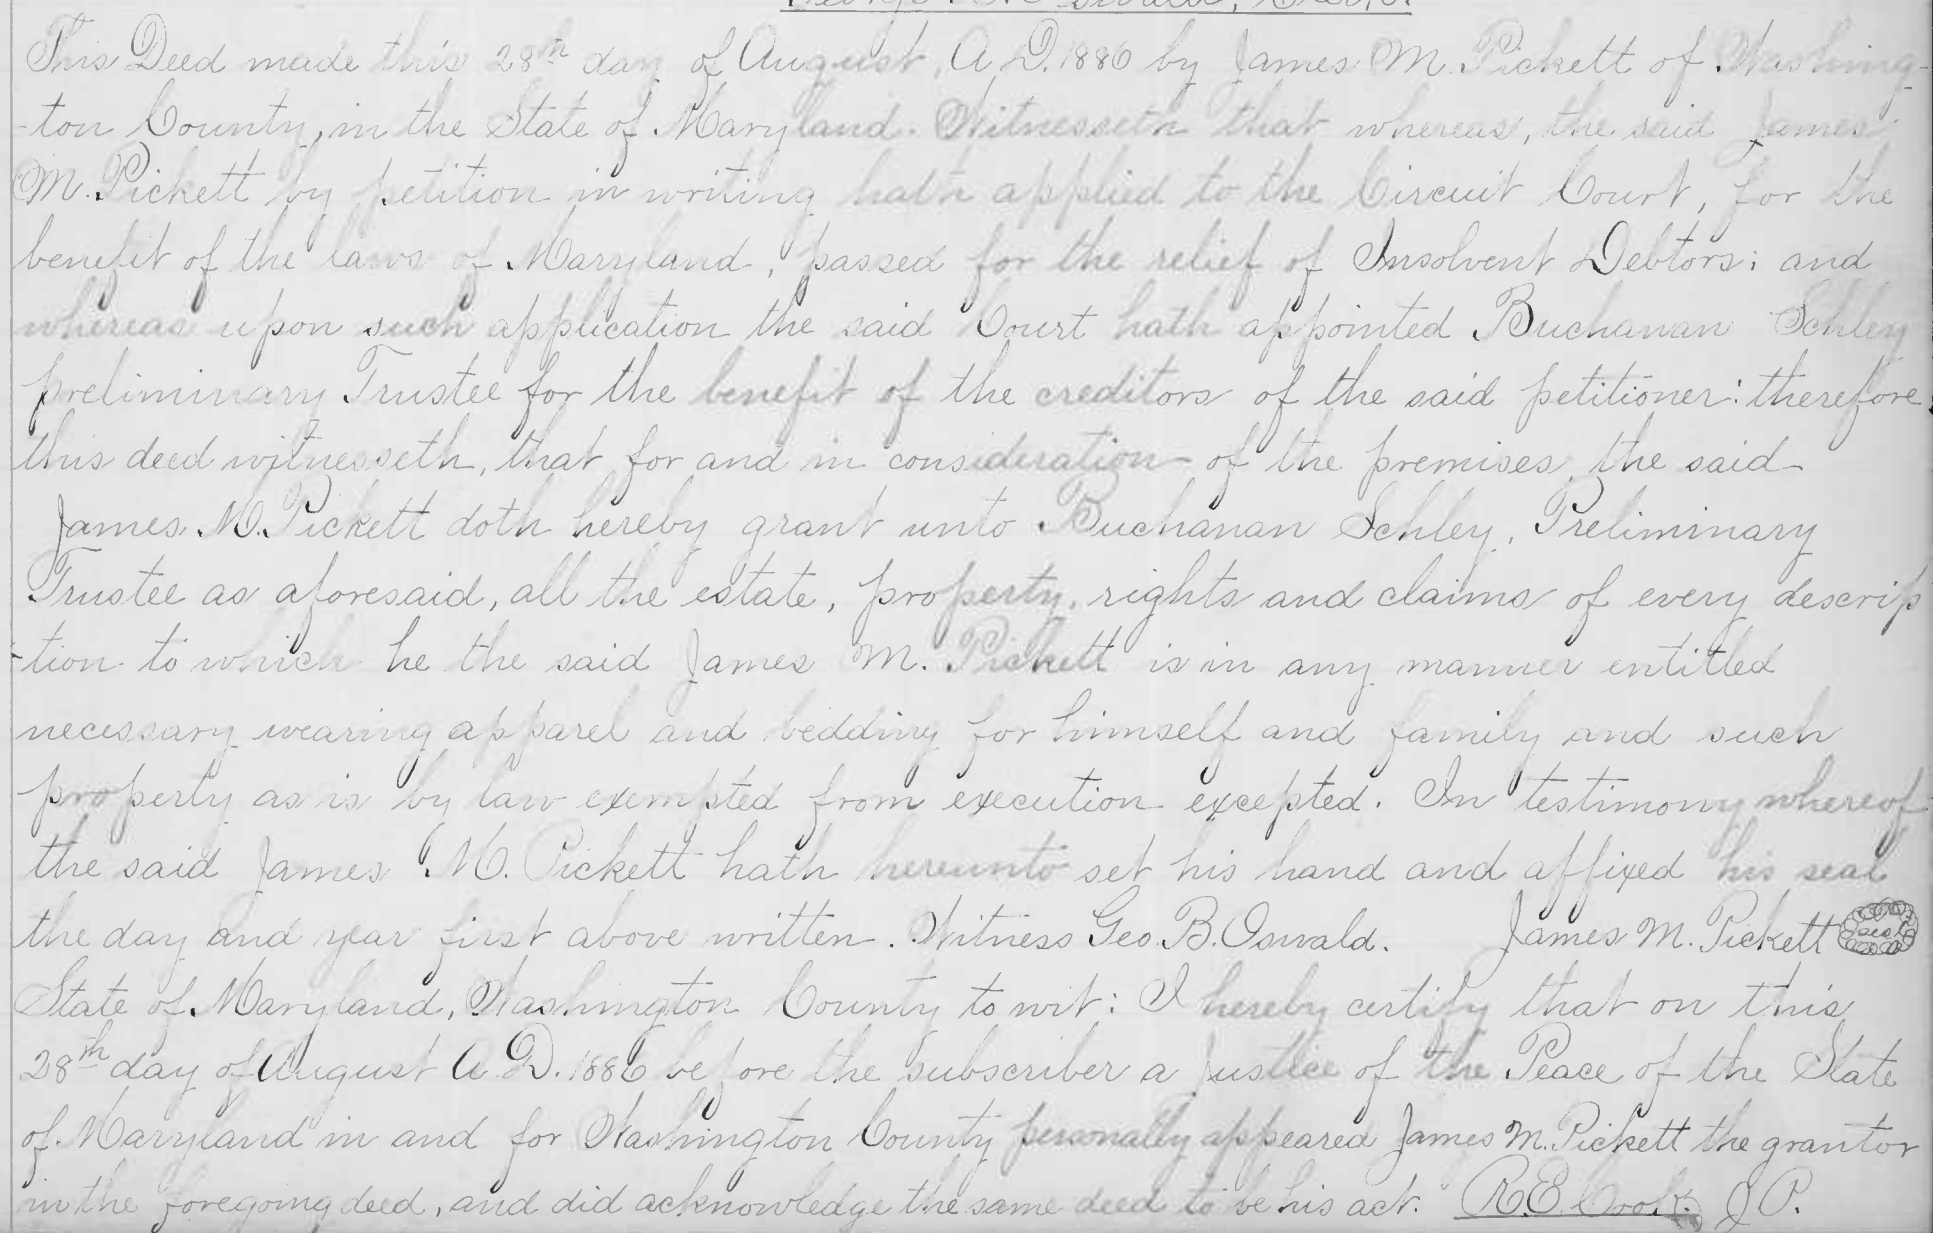 This Deed made this 28th day of August, A.D. 1886 by James M. Pickett of Washing-
-ton County, in the State of Maryland. Witnesseth that whereas, the said James
M. Pickett by petition in writing hath applied to the Circuit Court, for the
benefit of the laws of Maryland, passed for the relief of Insolvent Debtors; and
whereas upon such application the said Court hath appointed Buchanan Schley
preliminary Trustee for the benefit of the creditors of the said petitioner: therefore
this deed witnesseth, that for and in consideration of the premises, the said
James M. Pickett doth hereby grant unto Buchanan Schley, Preliminary
Trustee as aforesaid, all the estate, property, rights and claims of every descrip
-tion to which he the said James M. Pickett is in any manner entitled
necessary wearing apparel and bedding for himself and family and such
property as is by law exempted from execution excepted. In testimony whereof
the said James M. Pickett hath hereunto set his hand and affixed his seal
the day and year first above written. Witness Geo. B. Oswald. James M. Pickett seal
State of Maryland, Washington County to wit: I hereby certify that on this
28th day of August A.D. 1886 before the subscriber a Justice of the Peace of the State
of Maryland in and for Washington County personally appeared James M. Pickett the grantor
in the foregoing deed, and did acknowledge the same deed to be his act. R.E. J.P.